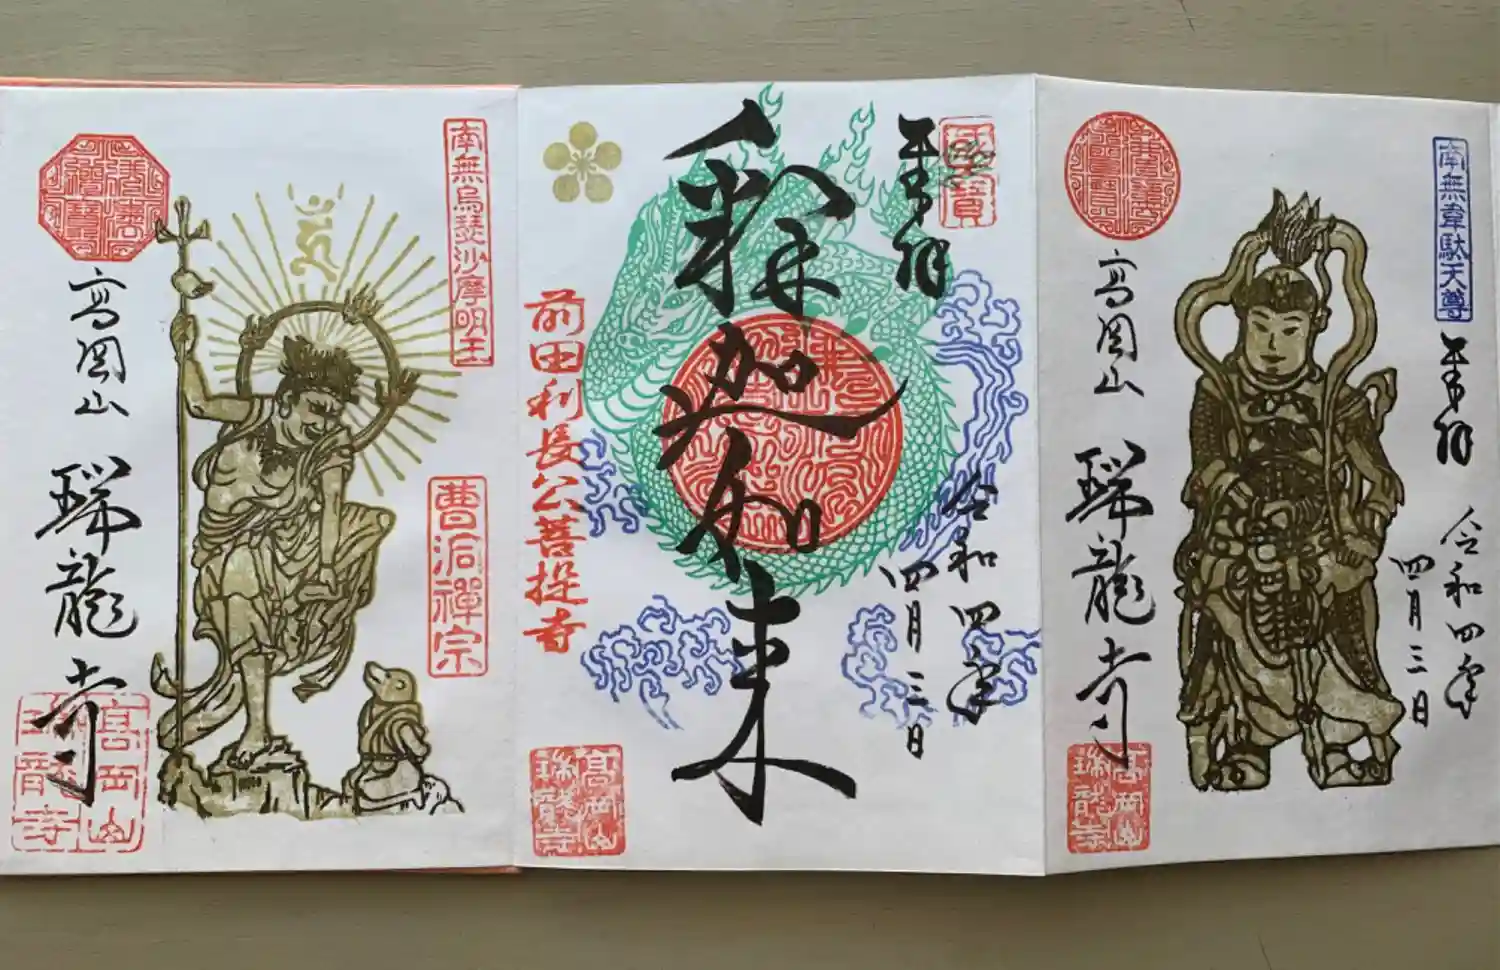 奉拝
令和四年
四月三日
南無韋駄天尊
高岡山
瑞龍寺
高岡山
瑞龍寺
奉拝
令和四年
四月三日
釋迦如来
前田利長公菩提寺
高岡山
瑞龍寺
南無烏瑟沙摩明王
曹洞禅宗
高岡山
瑞龍寺
高岡山
瑞龍寺